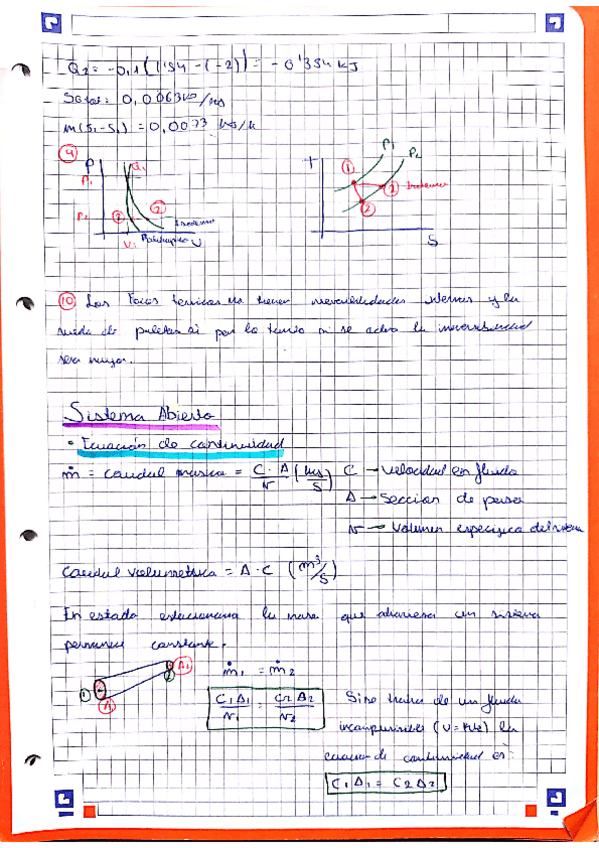 Q2 = -0,1(1'54 - (-2)) = -0'354 KJ
m(S2-S1) = 0,0073
9
P
P1
P2
1
2
V
T
P1
P2
1
2
S
10 Los focos termicos no tienen irreversibilidades internas y la
rueda de paletas si por lo tanto si se activa la irreversibilidad
sera mayor.
Sistema Abierto
• Ecuación de continuidad
ṁ = caudal masico = C·A/v (kg/s) C → velocidad en fluido
A → Sección de paso
v → Volumen especifico del sistema
Caudal volumetrico = A·C (m³/s)
En estado estacionario la masa que atraviesa un sistema
permanece constante.
ṁ1 = ṁ2
C1A1/v1 = C2A2/v2
Si se trata de un fluido
incompresible (v=kte) la
ecuacion de continuidad es:
C1A1 = C2A2